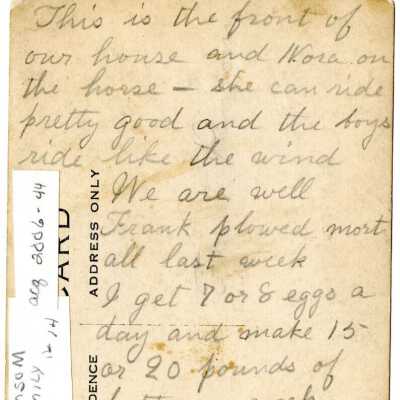 This is the front of
our house and Nora on
the horse — she can ride
pretty good and the boys
ride like the wind
We are well
Frank plowed mort
all last week
I get 7 or 8 eggs a
day and make 15
or 20 pounds of
ADDRESS ONLY
CARD
acq 2006-44
12-14